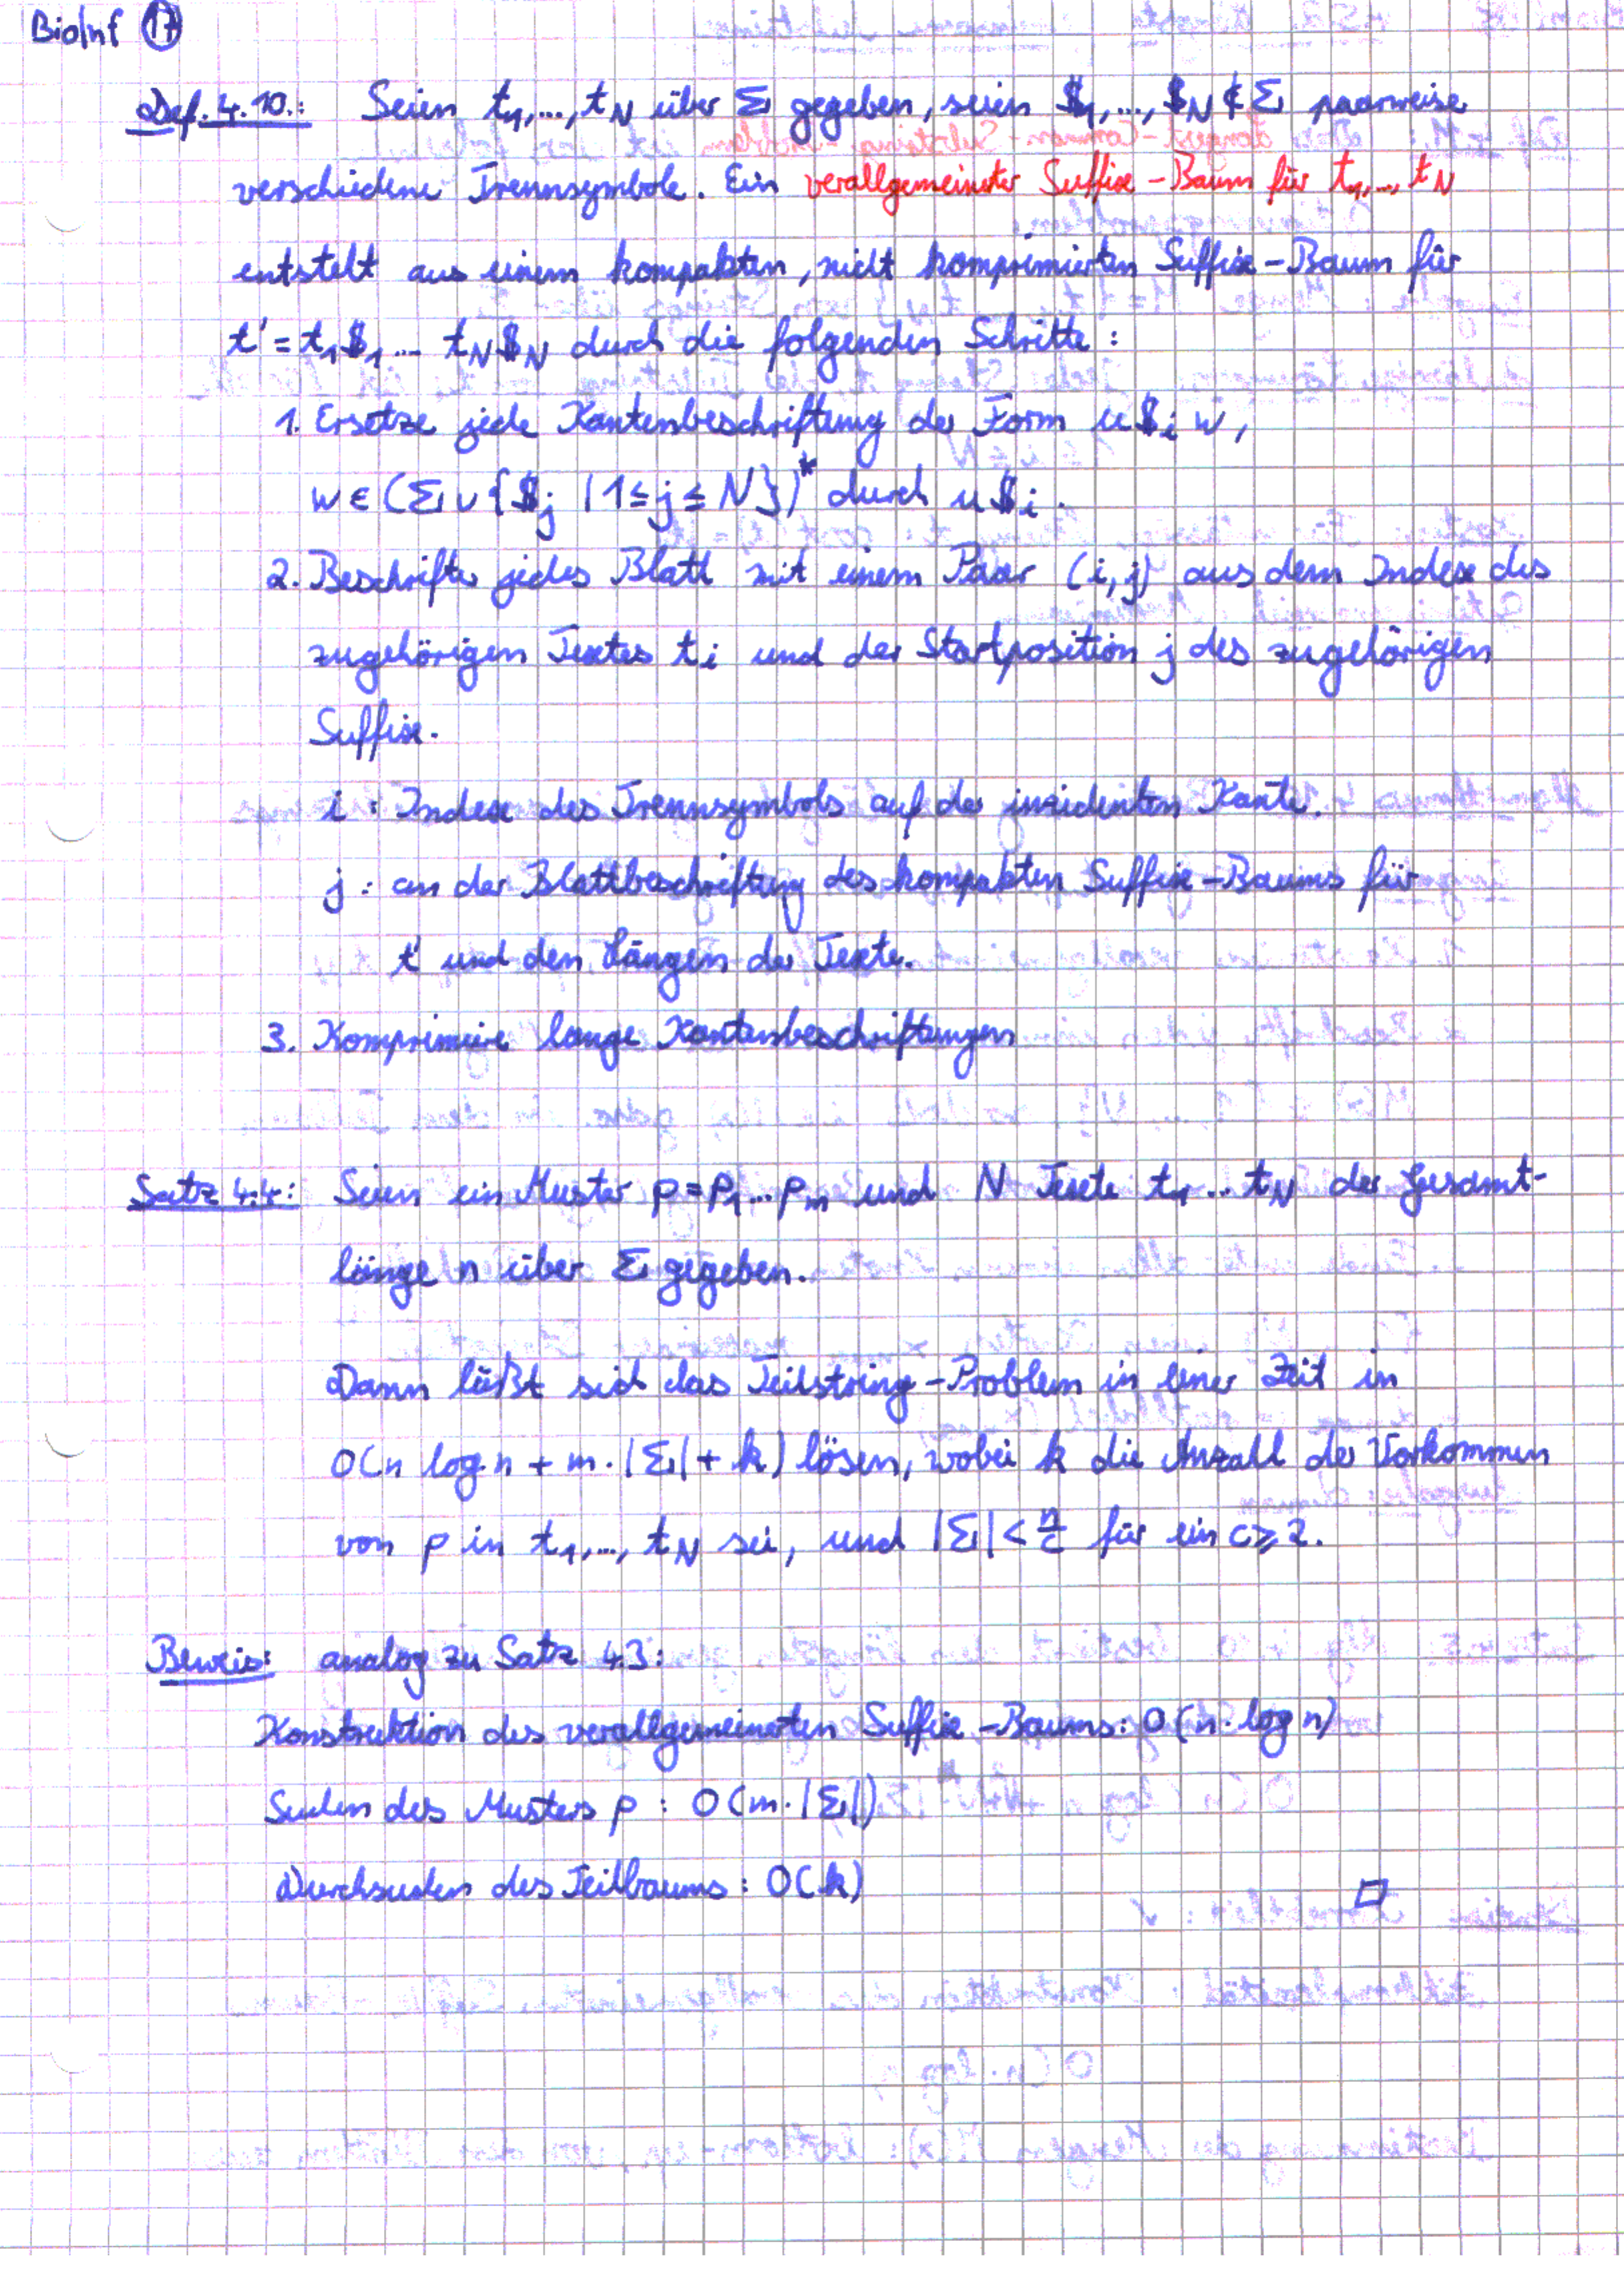 BioInf 17
Def. 4.10.: Seien t₁,..., t_N über Σ gegeben, seien $₁,..., $_N ∉ Σ paarweise
verschiedene Trennsymbole. Ein verallgemeinerter Suffix-Baum für t₁,..., t_N
entsteht aus einem kompakten, nicht komprimierten Suffix-Baum für
t' = t₁$₁... t_N$_N durch die folgenden Schritte:
1. Ersetze jede Kantenbeschriftung der Form u$ᵢw,
w ∈ (Σ ∪ {$ⱼ | 1 ≤ j ≤ N})* durch u$ᵢ.
2. Beschrifte jedes Blatt mit einem Paar (i,j) aus dem Index des
zugehörigen Textes tᵢ und der Startposition j des zugehörigen
Suffix.
i : Index des Trennsymbols auf der inzidenten Kante.
j : an der Blattbeschriftung des kompakten Suffix-Baums für
t' und den Längen der Texte.
3. Komprimiere lange Kantenbeschriftungen
Satz 4.4: Seien ein Muster p = p₁...pₘ und N Texte t₁...t_N der Gesamt-
länge n über Σ gegeben.
Dann läßt sich das Teilstring-Problem in einer Zeit in
O(n log n + m·|Σ| + k) lösen, wobei k die Anzahl der Vorkommen
von p in t₁,..., t_N sei, und |Σ| < n/c für ein c ≥ 2.
Beweis: analog zu Satz 4.3:
Konstruktion des verallgemeinerten Suffix-Baums: O(n·log n)
Suchen des Musters p : O(m·|Σ|)
Durchsuchen des Teilbaums: O(k) □